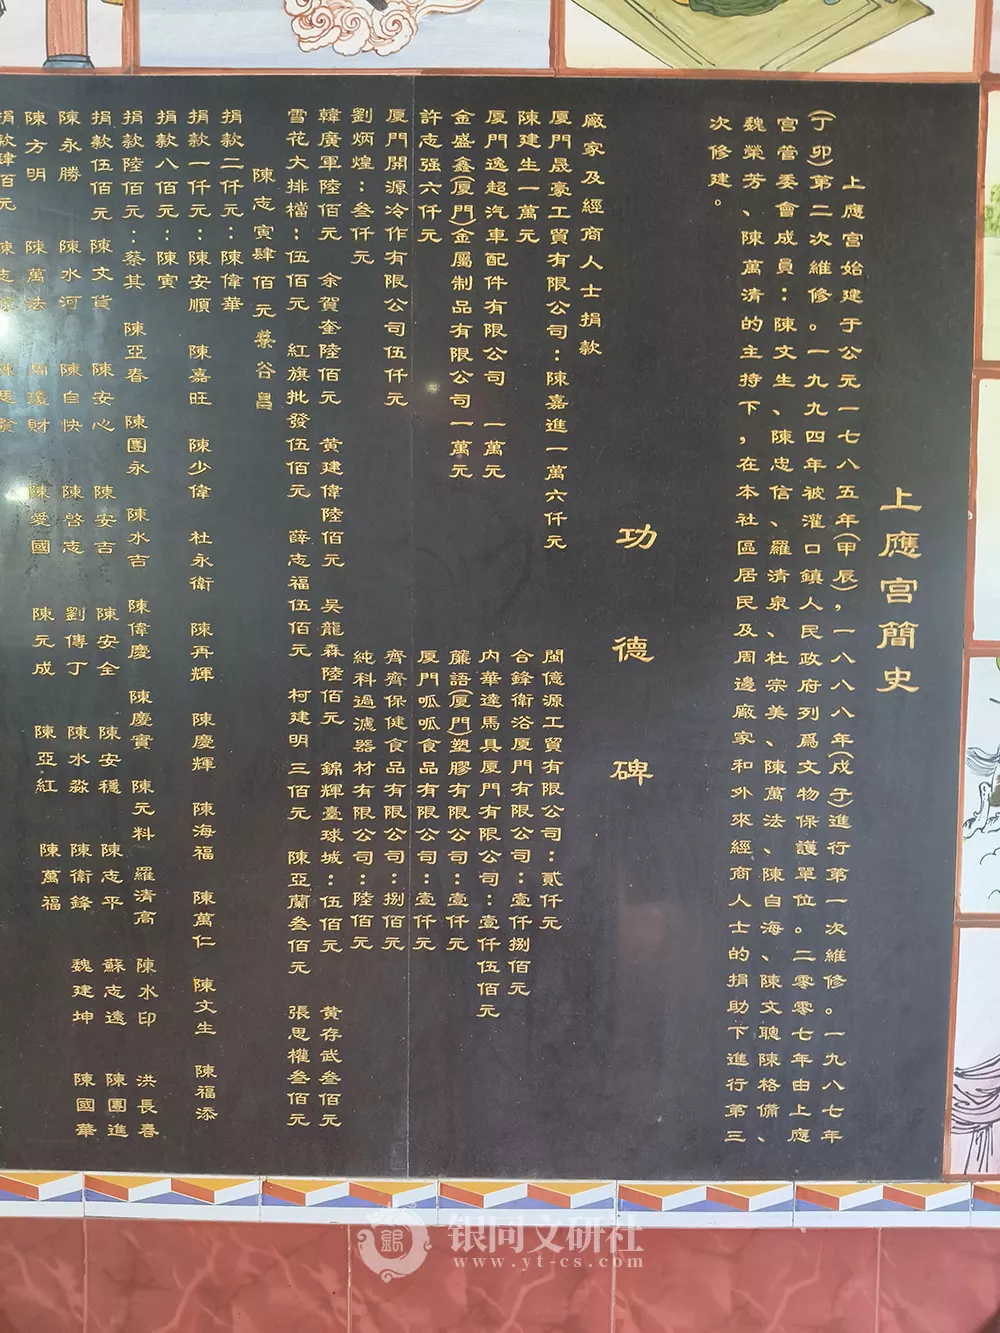 上應宮簡史
上應宮始建于公元一七八五年(甲辰),一八八八年(戍子)進行第一次維修。一九八七年
(丁卯)第二次維修。一九九四年被灌口鎮人民政府列爲文物保護單位。二零零七年由上應
宮管委會成員:陳文生、陳忠信、羅清泉、杜宗美、陳萬法、陳自海、陳文聰陳格備、
魏榮芳、陳萬清的主持下,在本社區居民及周邊廠家和外來經商人士的捐助下進行第三
次修建。
功德碑
廠家及經商人士捐款
厦門晟豪工貿有限公司:陳嘉進一萬六仟元 閩億源工貿有限公司:貳仟元
陳建生一萬元 合鋒衛浴厦門有限公司:壹仟捌佰元
厦門逸超汽車配件有限公司 一萬元 内華達馬具厦門有限公司:壹仟伍佰元
金盛鑫(厦門)金屬制品有限公司一萬元 簾語(厦門)塑膠有限公司:壹仟元
許志强六仟元 厦門呱呱食品有限公司:壹仟元
厦門開源冷作有限公司伍仟元 齊齊保健食品有限公司:捌佰元
劉炳煌:叁仟元 純科過濾器材有限公司:陸佰元
韓廣軍陸佰元 余賀奎陸佰元 黄建偉陸佰元 吴龍森陸佰元 錦輝臺球城:伍佰元 黄存武叁佰元
雪花大排檔:伍佰元 紅旗批發伍佰元 薛志福伍佰元 柯建明三佰元 陳亞蘭叁佰元 張思權叁佰元
陳志寅肆佰元 蔡谷昌
捐款二仟元:陳偉華
捐款一仟元:陳安順 陳嘉旺 陳少偉 杜永衛 陳再輝 陳慶輝 陳海福 陳萬仁 陳文生 陳福添
捐款八佰元:陳寅
捐款陸佰元:蔡其 陳亞春 陳團永 陳水吉 陳偉慶 陳慶賓 陳元料 羅清高 陳水印 洪長春
捐款伍佰元 陳文貨 陳安心 陳安吉 陳安全 陳安穩 陳志平 蘇志遠 陳團進
陳永勝 陳水河 陳自快 陳啓志 劉傳丁 陳水淼 陳衛鋒 魏建坤 陳國華
陳方明 陳萬法 周瓊財 陳愛國 陳元成 陳亞紅 陳萬福
捐款肆佰元
银同文研社
www.yt-cs.com